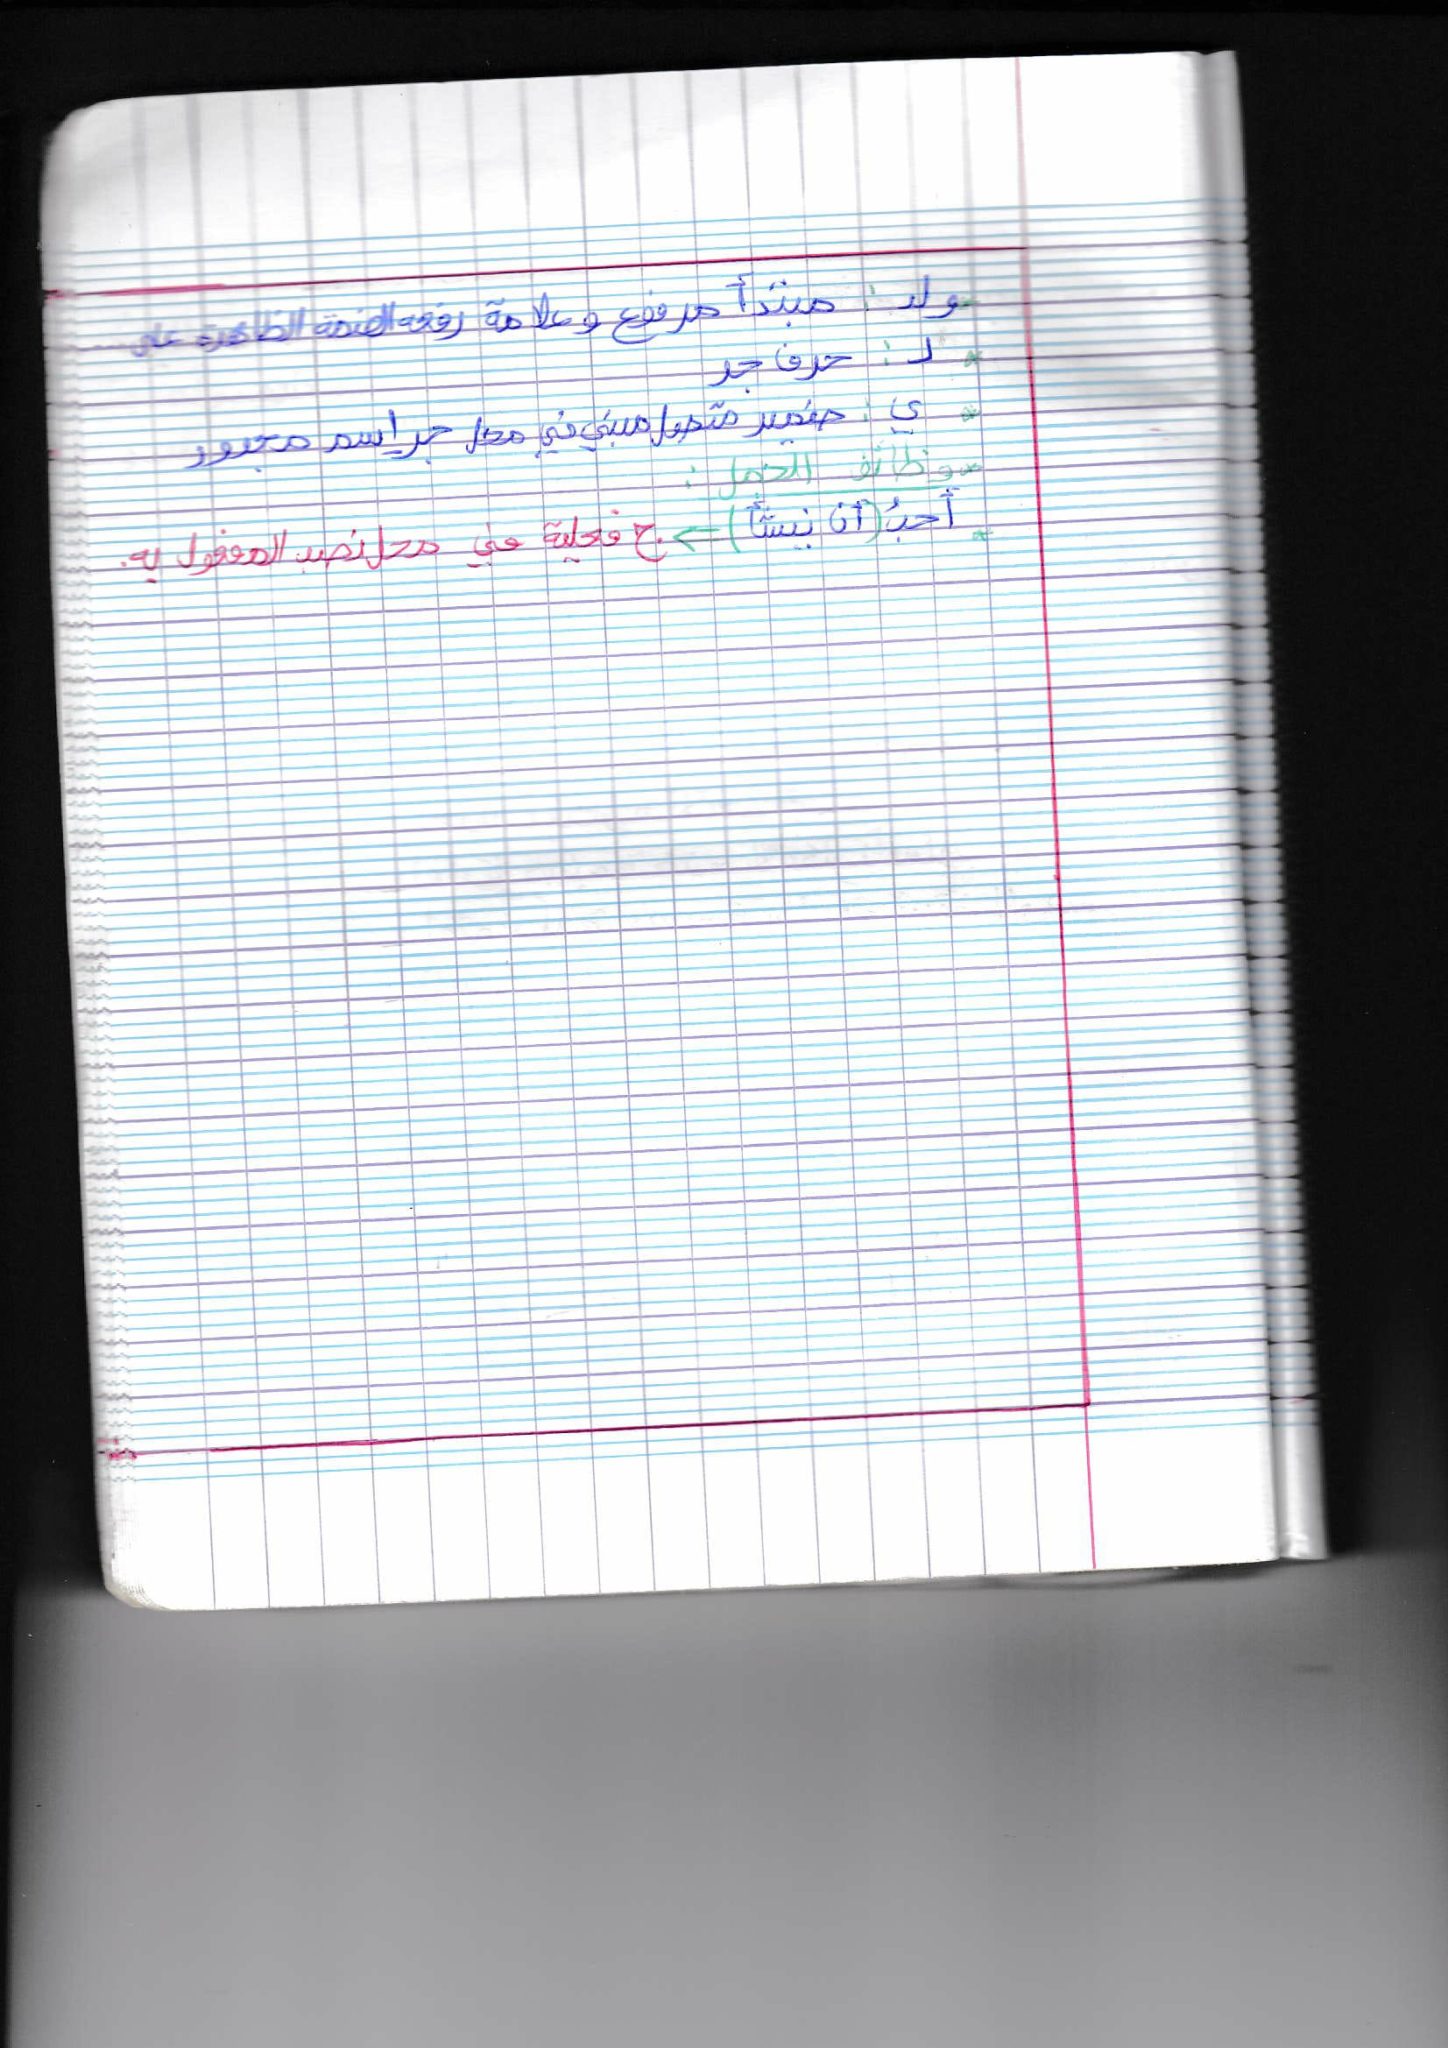 ولد : مبتدأ مرفوع وعلامة رفعه الضمة الظاهرة على
* لـ : حرف جر
* ي : ضمير متصل مبني في محل جر اسم مجرور
وظائف الجمل :
* أحبُ (أن ينشأ) ← ج فعلية في محل نصب المفعول به.